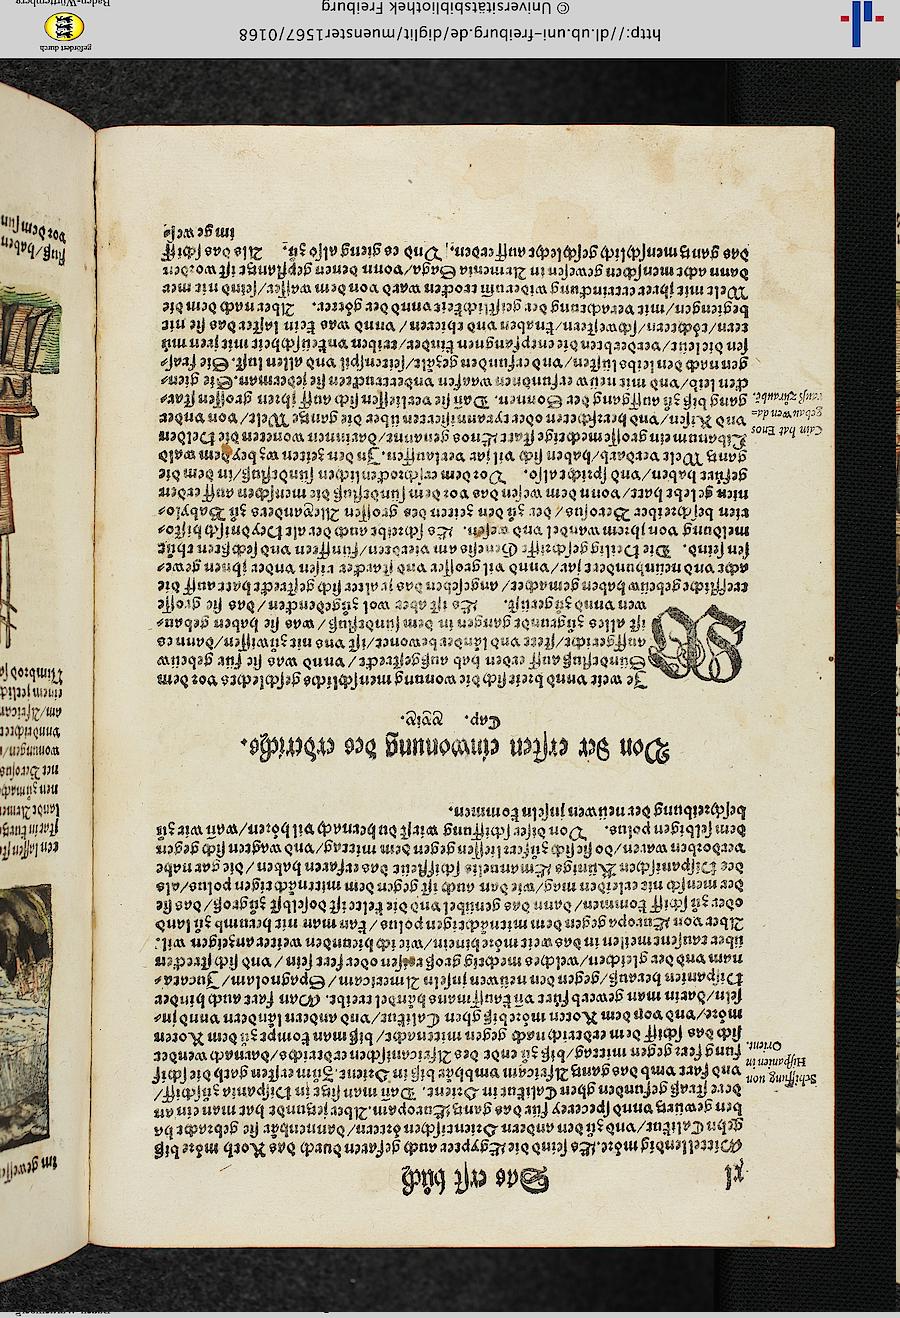 xl Das erst bůch
Mittellendig möre. Es seind die Egypter auch gefaren durch das Roth möre biß
gehn Calikut/vnd zů den andern Orientischen örtern/dannenhär sie gebracht ha
ben gewürtz vnnd specerey für das gantz Europam. Aber jetzunde hat man ein an
dere straß gefunden ghen Calikut in Orient. Dañ man sitzt in Hispania zů schiff/
vnd fart vmb das gantz Africam vmbhär biß in Orient. Zům ersten gath die schif
fung fert gegen mittag/biß zů ende des Africanischen erdtrichs/darnach wendet
sich das schiff dem erdtrich nach gegen mitnacht/biß man kompt zů dem Roten
möre/vnd von dem Roten möre biß ghen Calikut/vnd andern ländern vnnd in=
seln/darin man gewerb fürt vñ kauffmans händel treibt. Man fart auch hinder
Hispanien herauß/gegen den neüwen inseln Americam/Spagnolam/Jucata=
nam vnd der gleichen/welches mechtig groß inseln oder fert sein/vnd sich strecken
über tausent meilen in das weit möre hinein/wie ich hieunden weiter anzeigen wil.
Aber von Europa gegen dem mitnächtigen polus/kan man nit herumb zů land
oder zů schiff kommen/dann das und die kelte ist doselbst zů groß/das sie
der mensch nit erleiden mag/wie dan auch ist gegen dem mitnächtigen polus/als
des Hispanischen Künigs Emanuelis schiffleüt das erfaren haben/die gar nahe
verdorben waren/do sie sich zů fer liessen gegen dem mittag/vnd wagten sich gegen
dem selbigen polus. Von diser schiffung wirst du hernach vil hören/wañ wir zů
beschreibung der neüwen inseln kommen.
Schiffung von
Hispanien in
Orient.
Von der ersten einwonung des erdtrichs.
Cap. xxix.
WIe weit vnnd breit sich die wonung menschlichs geschlechts vor dem
Sündtflůß auff erden hab außgestreckt/vnnd was sie für gebeüw
auffgericht/stett vnd länder bewonet/ist vns nit zů wissen/dann es
ist alles zů grunde gangen in dem sündtflůß/was sie haben gebauw=
wen vnnd zůgerüst. Es ist aber wol zůgedencken/das sie grosse
treffliche gebeüw haben gemachet/angesehen das jr alter sich gestreckt hatt auff die
acht vnd neünhundert jar/vnnd vil grosser vnd starcker risen vnder jhnen gewe=
sen seind. Die Heilig geschrifft Genesis am vierdten/fünfften vnd sechsten thůt
meldung von jhrem wandel vnd wesen. Es schreibt auch der alt Heydnisch histo=
rien beschreiber Berosus/der zů den zeiten des grossen Alexanders zů Babylo=
nien gelebt hatt/vonn dem wesen das vor dem sündtflůß die menschen auff erden
gefürt haben/vnd spricht also. Vor dem erschrockenlichen sündtflůß/in dem die
gantz Welt verdarb/haben sich vil jar verlauffen. Zů den zeiten wz bey dem wald
Libanum ein grossmechtige statt Enos genannt/darinnen woneten die Helden
vnd Risen/vnd herscheten oder tyrannisierten über die gantze Welt/von vnder
gang biß zů auffgang der Sonnen. Dañ sie verliessen sich auff jhren grossen star=
cken leib/vnd mit neüw erfundnen waafen vndertruckten sie jederman. Sie gien=
gen nach den leibs lüsten/vnd erfunden gezält/seitenspil vnd allen lust. Sie fras=
sen die leüt/verderbten die entpfangnen kinder/triben vnkeüscheit mit jren můt=
tern/töchtern/schwestern/knaben vnd thieren/vnnd was kein laster das sie nit
begiengen/mit verachtung der geistlicheit vnnd der götter. Aber nach dem die
Welt mit jhrer ertrinckung widerumb trocken ward von dem wasser/seind nit mer
dann acht menschen gewesen in Armenia Saga/vonn denen gepflantzt ist worden
das gantz menschlich geschlecht auff erden. Vnd es gieng also zů. Als das schiff
im gewes=
Cain hat Enos
gebauwen
http://dl.ub.uni-freiburg.de/diglit/muenster1567/0168
© Universitätsbibliothek Freiburg
gefördert durch
Baden-Württemberg